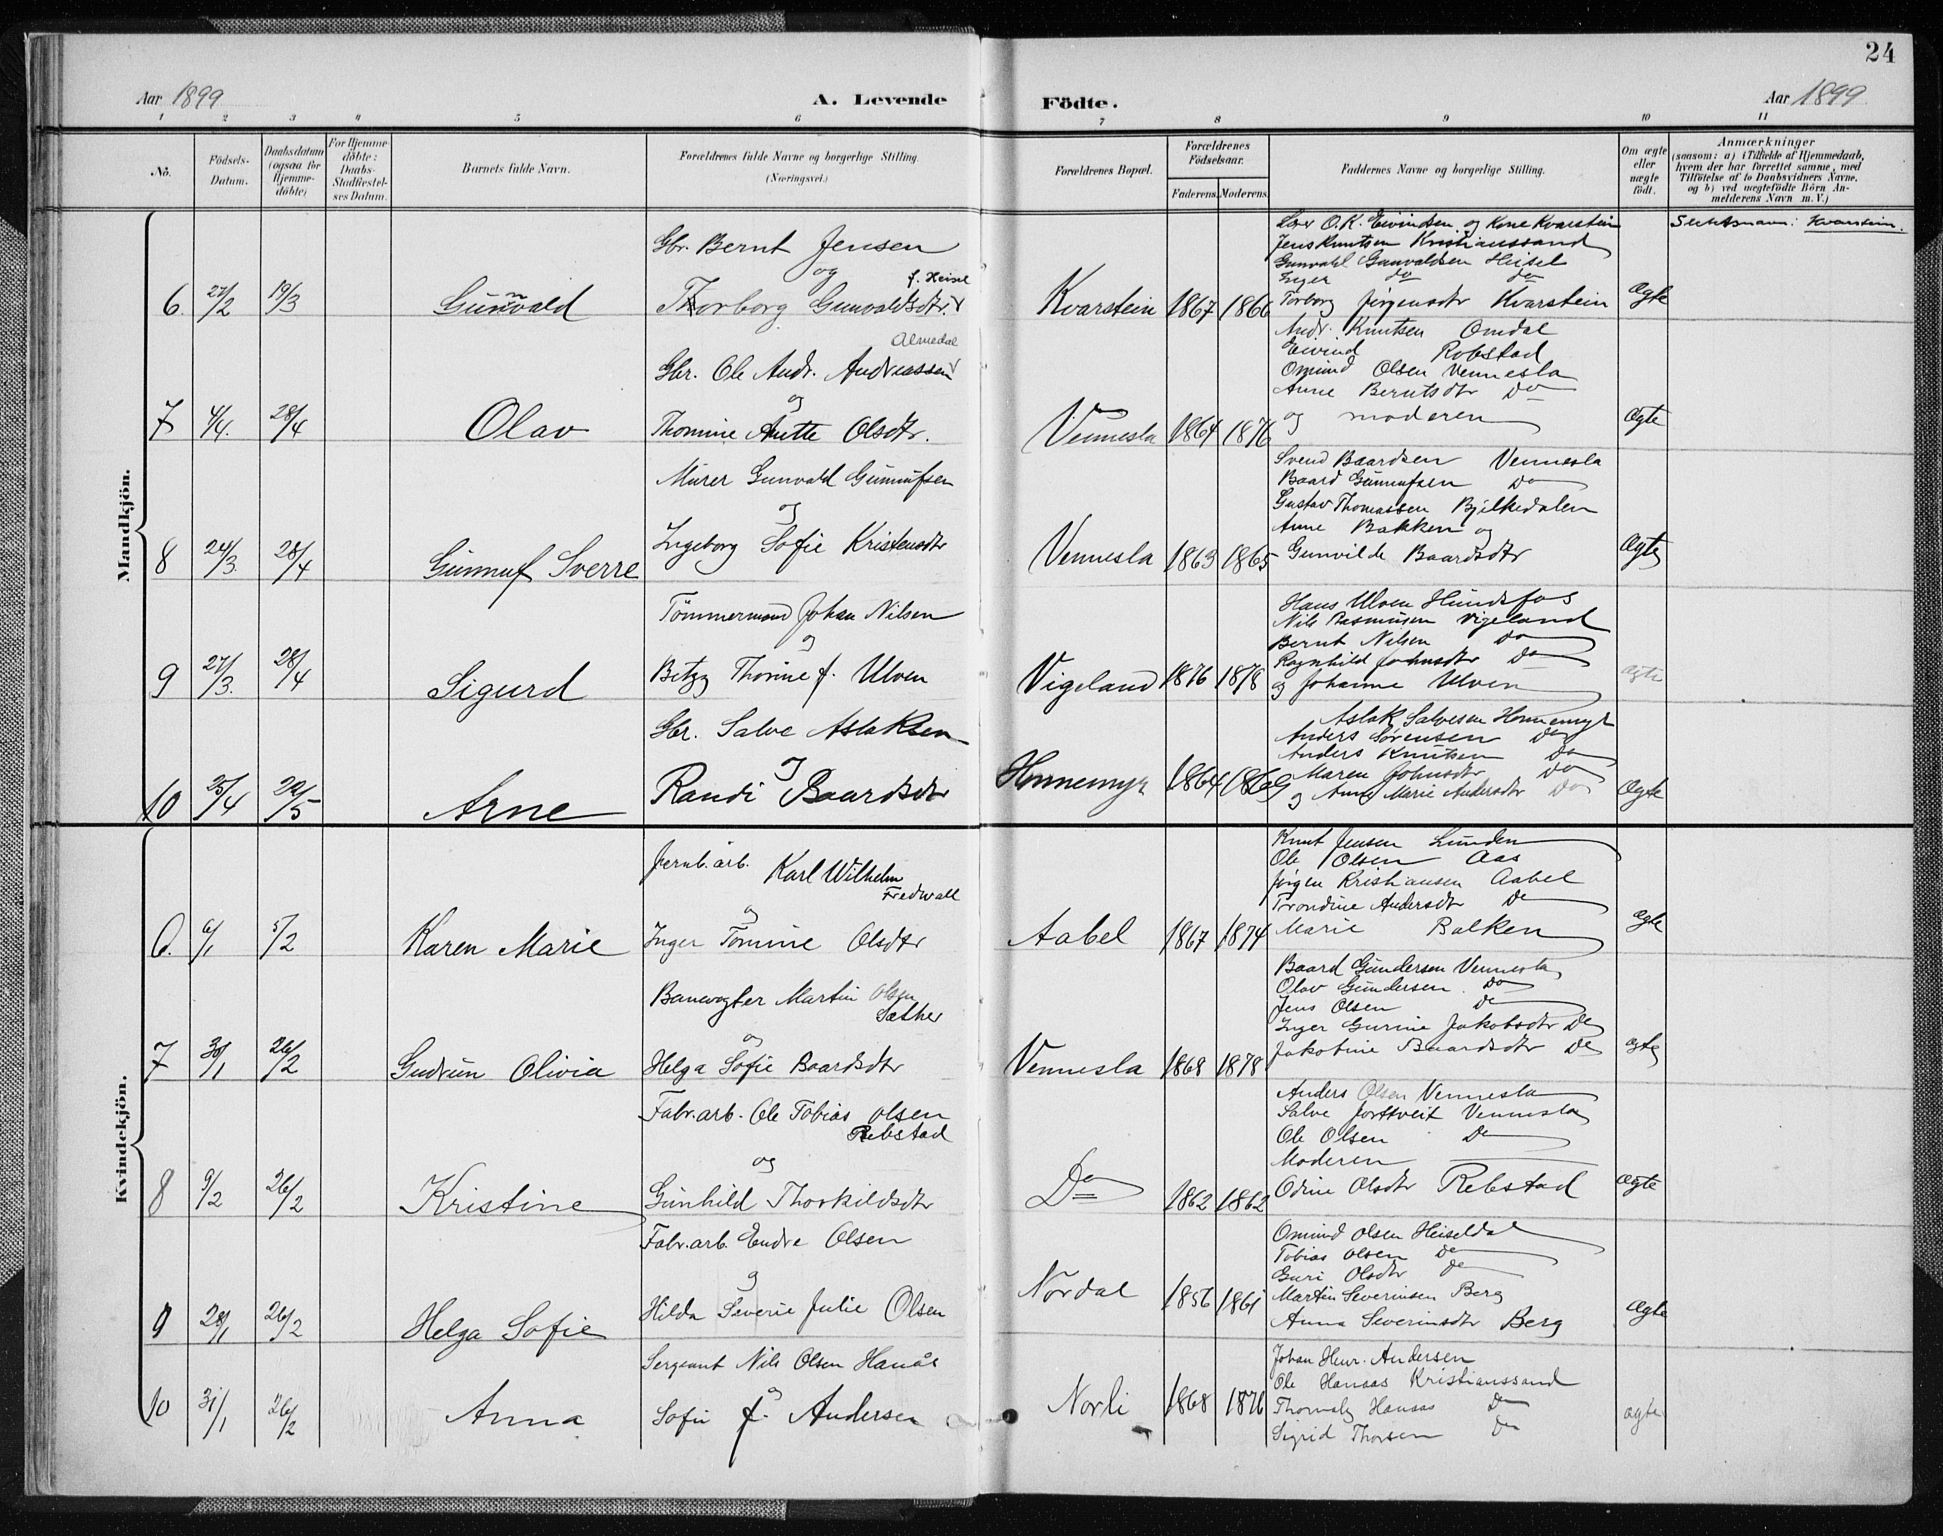 24
Aar 1899
A. Levende
Födte.
Aar 1899
1 2 3 4 5 6 7 8 9 10 11
No.
Födsels-
Datum.
Daabsdatum
(ogsaa for
Hjemme-
döbte)
For Hjemme-
döbte:
Daabs-
Stadfæstel-
ses Datum.
Barnets fulde Navn.
Forældrenes fulde Navne og borgerlige Stilling.
(Næringsvei.)
Forældrenes Bopæl.
Forældrenes
Födselsaar.
Faderens.
Moderens.
Faddernes Navne og borgerlige Stilling.
Om ægte
eller
uægte
födt.
Anmærkninger
(saasom: a) i Tilfælde af Hjemmedaab,
hvem der har forrettet samme, med
Tilföielse af to Daabsvidners Navne,
og b) ved uægtefödte Börn An-
melderens Navn m. V.)
Mandkjön.
6. 27/2 19/3 Gunvald
Gbr. Bernt Jensen
og
f. Heisel
Thorborg Gunvaldsdtr.
Kvarstein 1867 1866
O. K. Eivindsen og Kone Kvarstein
Jens Knutsen Kristianssand
Gunvald Gunvaldsen Heisel
Inger do do
Torborg Jørgensdtr Kvarstein
Ægte
Slektsnavn: Kvarstein.
7 4/4. 28/4 Olav
Almedal
Gbr. Ole Andr. Andreassen
og
Thomine Anette Olsdtr.
Vennesla 1864 1876
Andr. Knutsen Omdal
Eivind Robstad
Omund Olsen Vennesla
Anne Berntsdtr Do
og moderen
Ægte
8 24/3. 28/4 Gunnuf Sverre
Murer Gunvald Gunnufsen
og
Ingeborg Sofie Kristensdtr
Vennesla 1863 1865
Svend Baardsen Vennesla
Baard Gunnufsen Do
Gustav Thomassen Bjelkedalen
Anne Bakken og
Gunvilde Baardsdtr
Ægte
9 27/3. 28/4 Sigurd
Tömmermand Johan Nilsen
og
Betzy Thorine f. Ulven
Vigeland 1876 1878
Hans Ulven Hundsfos
Nils Rasmussen Vigeland
Bernt Nilsen Do
Ragnhild Johnsdtr Do
og Johanne Ulven
ægte
10 25/4 22/5 Arne
Gbr. Salve Aslaksen
og
Randi Baardsdtr
Honnemyr 1864 1869
Aslak Salvesen Honnemyr
Anders Sørensen Do
Anders Knutsen Do
Maren Johnsdtr Do
og Anne Marie Andersdtr Do
Ægte
Kvindekjön.
6. 6/1 5/2 Karen Marie
Jernb. arb. Karl Wilhelm
Fredwall
og
Inger Tomine Olsdtr
Aabel 1867 1874
Knut Jensen Lunden
Ole Olsen Aas
Jørgen Kristiansen Aabel
Trondine Andersdtr Do
Marie Balken
Ægte
7 30/1 26/2 Gudrun Olivia
Banevogter Martin Olsen
Sæther
og
Helga Sofie Baardsdtr
Vennesla 1868 1878
Baard Gundersen Vennesla
Olav Gundersen Do
Jens Olsen Do
Inger Gurine Jakobsdtr Do
Jakobine Baardsdtr Do
ægte
8 9/2 26/2 Kristine
Fabr. arb. Ole Tobias Olsen
Rebstad
og
Gunhild Thorkildsdtr
Do 1862 1862
Anders Olsen Vennesla
Salve Jortveit Vennesla
Ole Olsen Do
Moderen
Odine Olsdtr Rebstad
Ægte
9 28/1 26/2 Helga Sofie
Fabr. arb. Endre Olsen
og
Hilda Severie Julie Olsen
Nordal 1856 1861
Omund Olsen Heiseldal
Tobias Olsen Do
Guri Olsdtr Do
Martin Severinsen Berg
Anna Severinsdtr Berg
Ægte
10 31/1 26/2 Anna
Sergeant Nils Olsen Hanås
og
Sofie f. Andersen
Norli 1868 1876
Johan Henr. Andersen
Ole Hanaas Kristianssand
Hanaas Do
Sigrid Thorsen Do
ægte